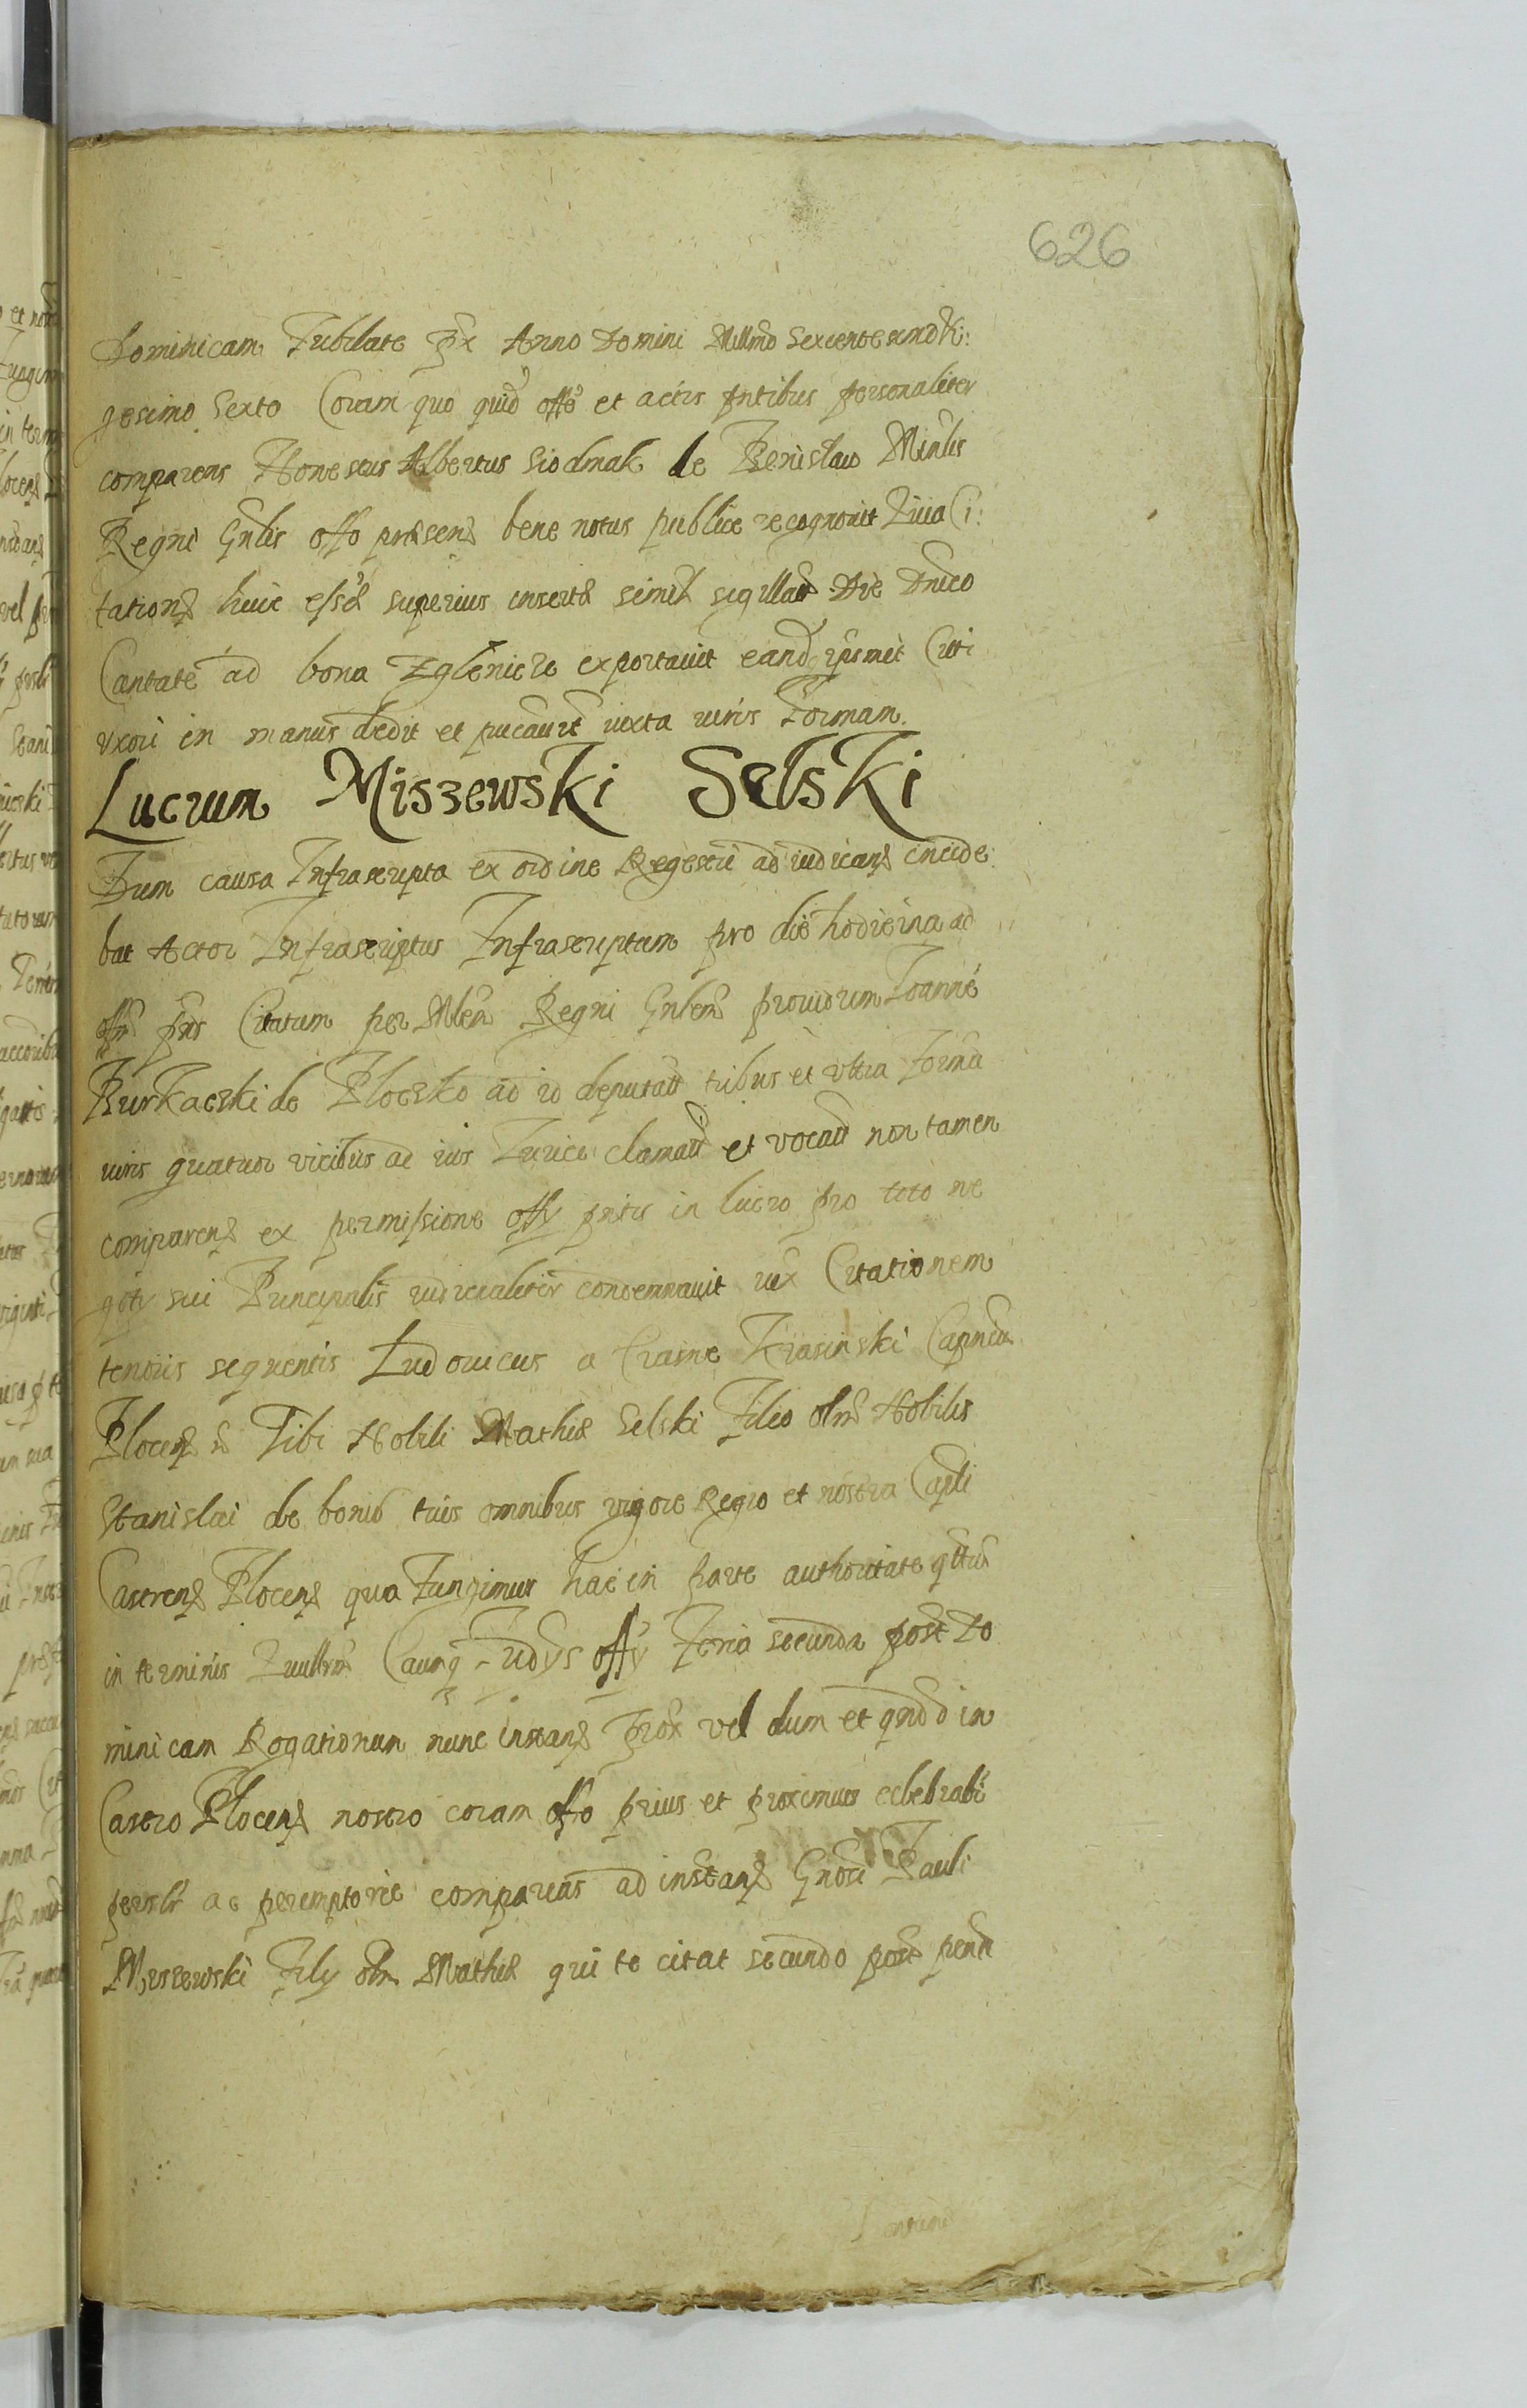 626
Dominicam Jubilate px Anno Domini Millmo Sexcente
gesimo Sexto Coram quo quid offo et actis pntibus personaliter
comparens Honestus Albertus Siodmak de Benislaw Minlis
Regni Gnlis offo praesens bene notus publice recognovit quia Ci:
tations huic superius insertae simil sigillat Die Dnico
Cantate ad bona Zglenicze exportavit eand ipsimet Citi
uxori in manus dedit et pucavit iuxta iuris Formam.
Lucrum Miszewski Selski
Dum causa Infrascripta ex ordine Regestri ad iudicans incide:
bat Actor Infrascriptus Infrascriptum pro die hodierna ad
offm pns Citatum per Mlem Regni Gnlem providum Joanne
Burkaczki de Ploczko ad id deputatt tribus et ultra Forma
iuris quatuor vicibus ad ius Iurice clamatt et vocatt non tamen
comparens ex permissione offy pntis in lucro pro toto ne
goty sui Principalis iudicialiter condemnavit iux Citationem
tenoris sequentis Ludovicus a Crasne Krasinski Capneus
Plocens Tibi Nobili Mathiae Selski Filio olim Nobilis
Stanislai de bonis tuis omnibus vigore Regio et nostra Capli
Castrens Plocens qua Fungimur hac in parte authoritate
in terminis Quullrm Caurq Judys offy Feria secunda post Do
minicam Rogationum nunc instans prox vel dum et qndd in
Castro Plocens nostro coram offo prius et proximius celebrabi
persLr ac peremptorie compareas ad instans Gnosi Pauli
Miszewski Fily olm Mathiae qui te citat secundo post pend